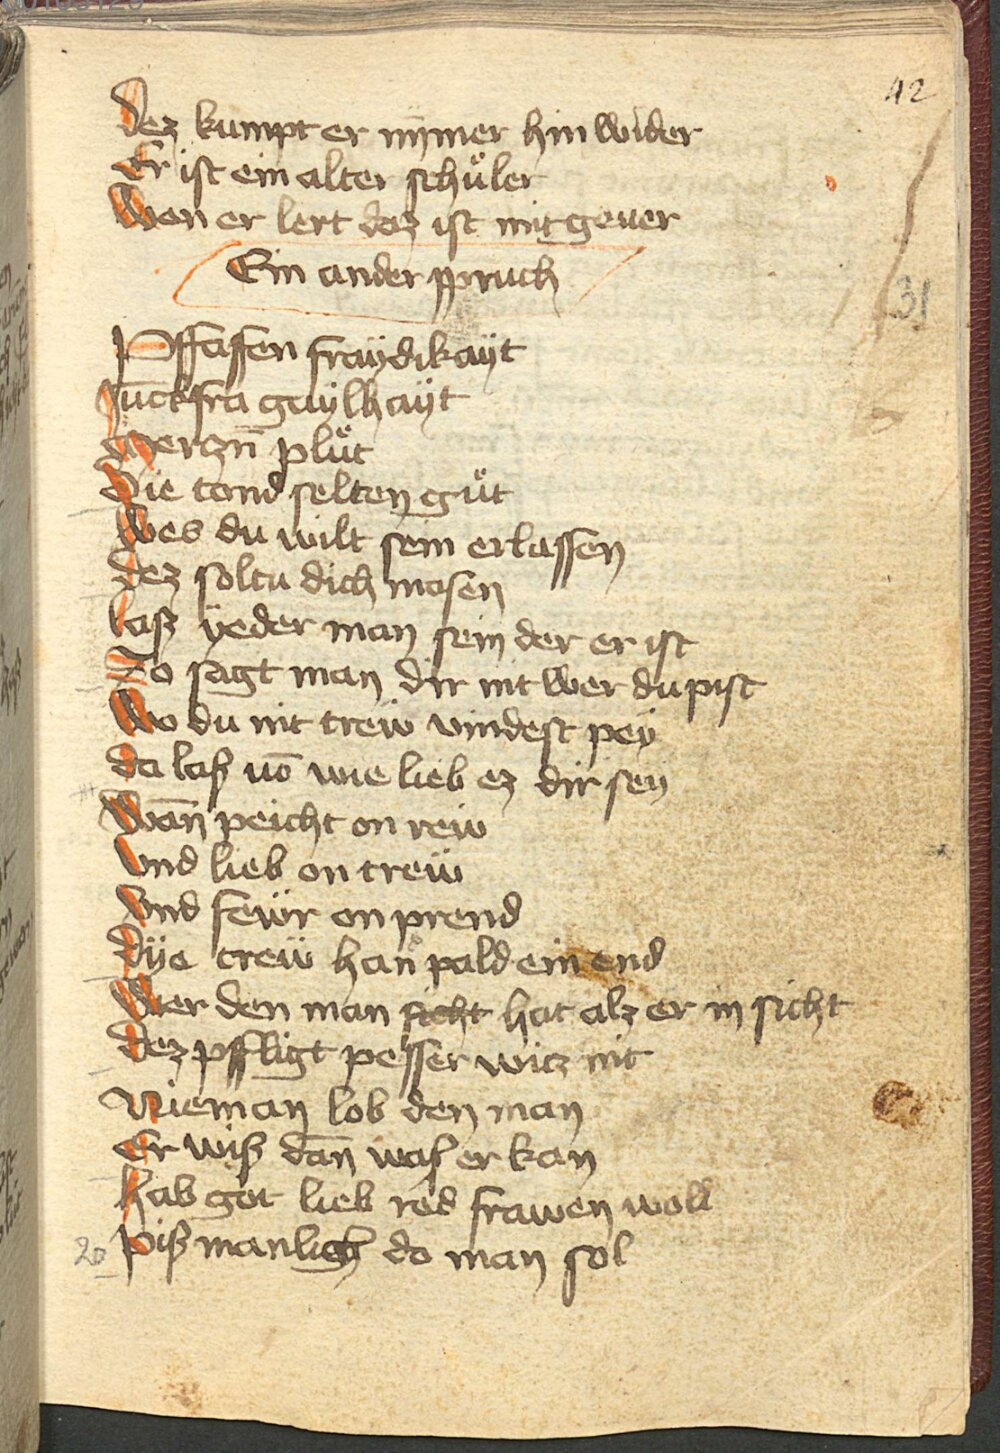 42
Dez kumpt er nÿmer hin wider
Er ist ein alter schuͤler
Wen er lert daz ist nit geuer
Ein ander spruch
31
Pffaffen fraÿdikaÿt
Jūckfra gaÿlhaÿt
pluͤt
Die tond selten guͤt
Wes du wilt sein erlassen
Dez soltu dich masen
Laß ÿeder man sein der er ist
So sagt man dir nit wer du pist
Wo du nit trew vindest peÿ
da laß vō wie lieb ez dir seÿ
Wān peicht on rew
Vnd lieb on trew
Vnd fewr on prend
Dÿe trew han pald ein end
Wer den man ficht hat alz er in sicht
Dez pffligt pesser witz nit
Nieman lob den man
Er wiß dān waß er kan
Hab got lieb red frawen woll
20 Piß manlich do man sol